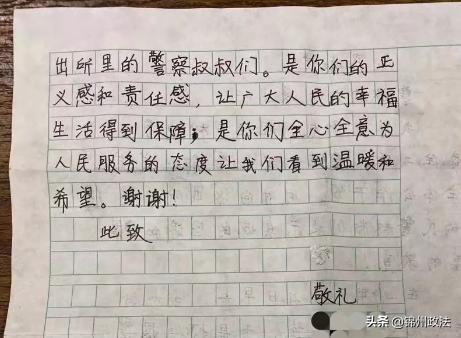 出所里的警察叔叔们。是你们的正
义感和责任感，让广大人民的幸福
生活得到保障；是你们全心全意为
人民服务的态度让我们看到温暖和
希望。谢谢！
此致
敬礼
头条@锦州政法